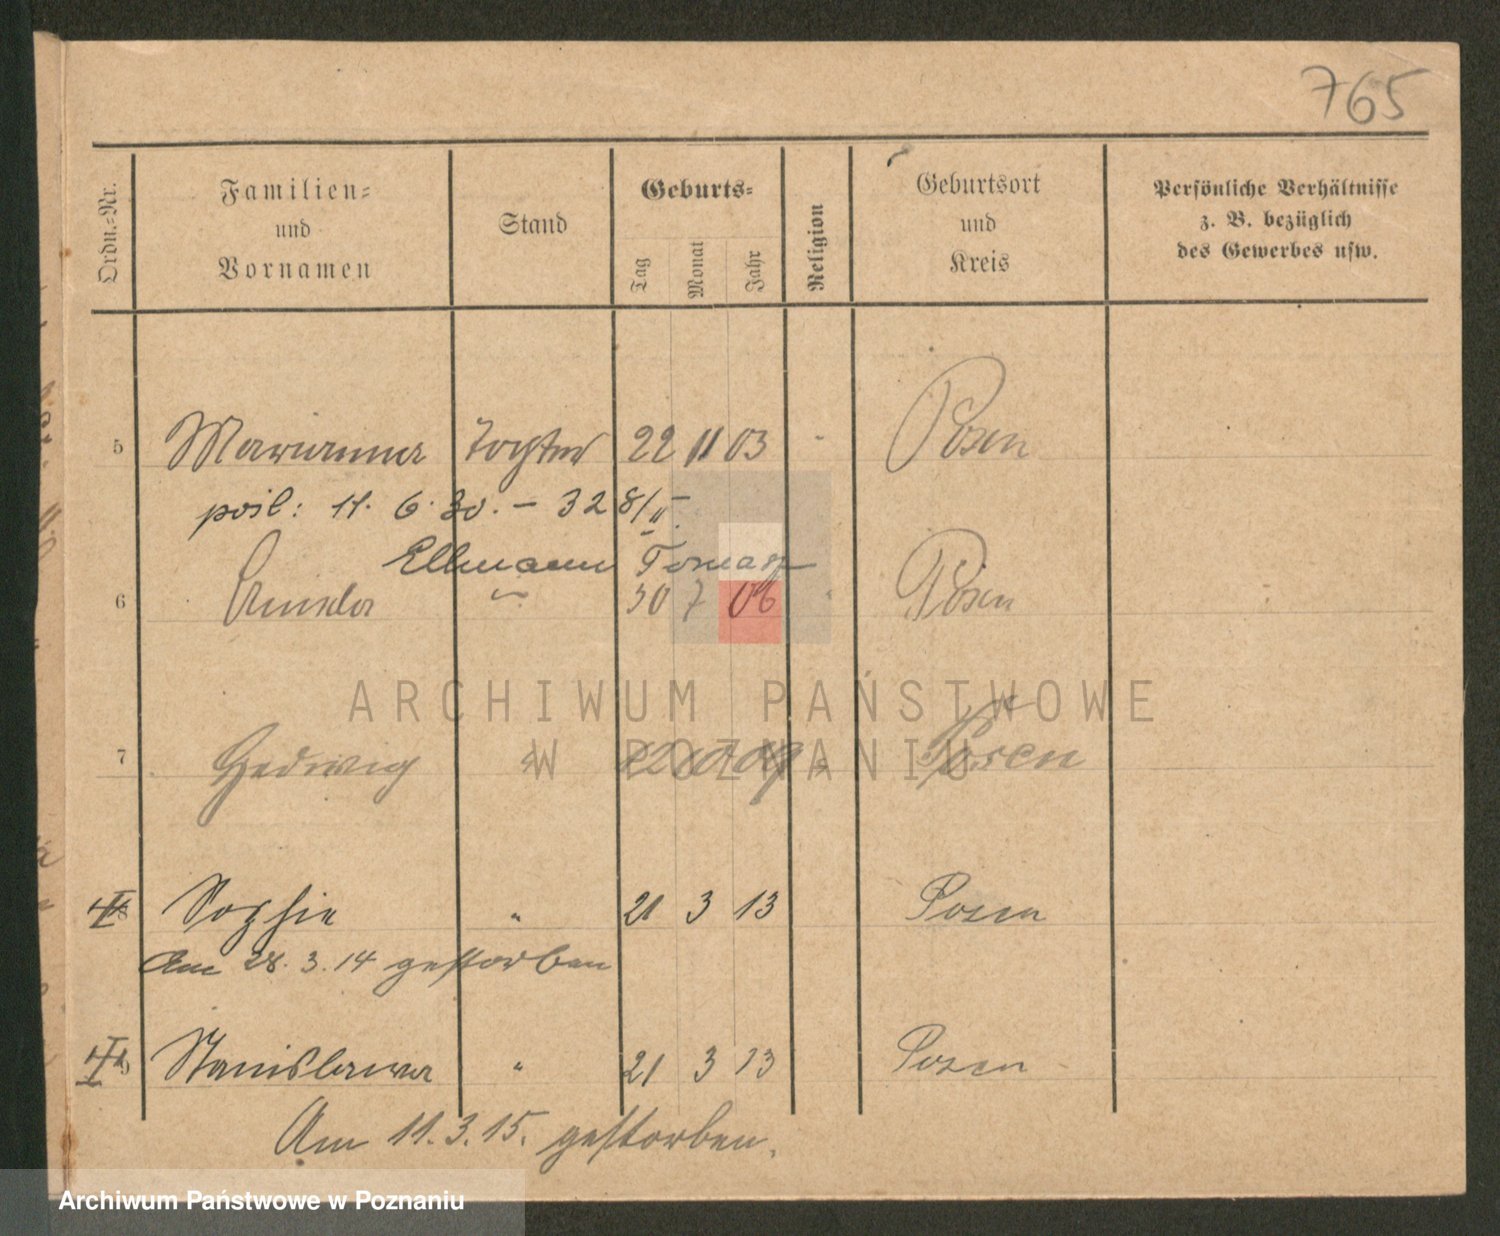 765
Ordn.-Nr.
Familien- und Vornamen
Stand
Geburts-
Tag
Monat
Jahr
Religion
Geburtsort und Kreis
Persönliche Verhältnisse z. B. bezüglich des Gewerbes usw.
5 Marianna Tochter 22 11 03 " Posen
pośl: 11. 6. 30. – 328/II.
Ellmann Tomasz
6 " 30 7 06 " Posen
ARCHIWUM PAŃSTWOWE
W POZNANIU
7 Hedwig " 12 10 09 " Posen
8 Sophie " 21 3 13 Posen
Am 28. 3. 14 gestorben
9 Stanislawa " 21 3 13 Posen
Am 11. 3. 15. gestorben.
Archiwum Państwowe w Poznaniu